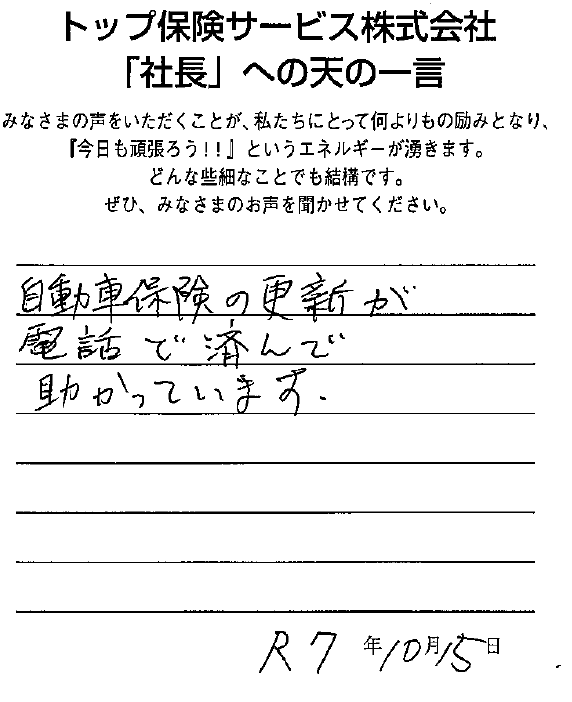 トップ保険サービス株式会社
「社長」への天の一言
みなさまの声をいただくことが、私たちにとって何よりもの励みとなり、
『今日も頑張ろう！！』というエネルギーが湧きます。
どんな些細なことでも結構です。
ぜひ、みなさまのお声を聞かせてください。
自動車保険の更新が
電話で済んで
助かっています.
R7年10月15日